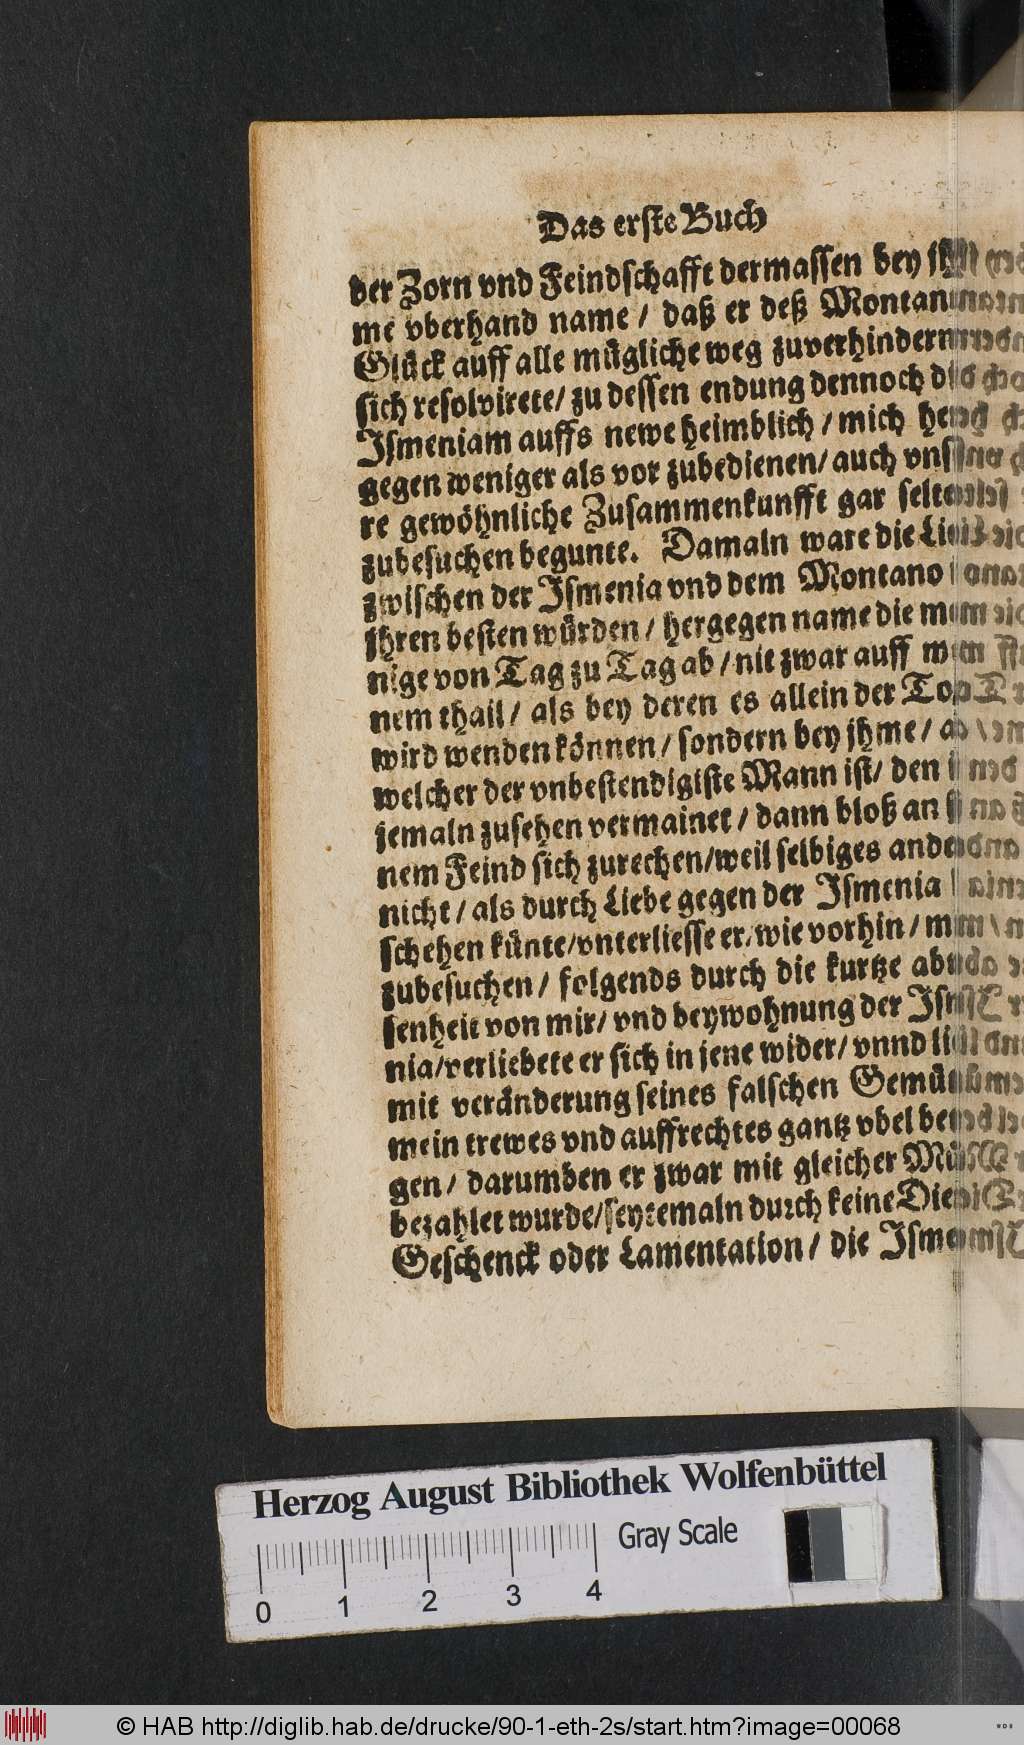 Das erste Buch
der Zorn vnd Feindschafft dermassen bey
me vberhand name / daß er deß
Glück auff alle mügliche weg
sich resolvirete / zu dessen endung dennoch
Ismeniam auffs newe heimblich / mich
gegen weniger als vor zubedienen / auch
re gewöhnliche Zusammenkunfft gar
zubesuchen begunte. Damaln ware die
zwischen der Ismenia vnd dem Montano
jhren besten würden / hergegen name die
nige von Tag zu Tag ab / nit zwar auff
nem thail / als bey deren es allein der
wird wenden können / sondern bey jhme /
welcher der vnbestendigiste Mann ist / den
jemaln zusehen vermainet / dann bloß an
nem Feind sich zurechen / weil selbiges
nicht / als durch Liebe gegen der Ismenia
schehen künte / vnterliesse er / wie vorhin /
zubesuchen / folgends durch die kurtze
senheit von mir / vnd beywohnung der
nia / verliebete er sich in jene wider / vnnd
mit veränderung seines falschen
mein trewes vnd auffrechtes gantz vbel
gen / darumben er zwar mit gleicher
bezahlet wurde / seytemaln durch keine
Geschenck oder Lamentation / die
Herzog August Bibliothek Wolfenbüttel
Gray Scale
0 1 2 3 4
© HAB http://diglib.hab.de/drucke/90-1-eth-2s/start.htm?image=00068